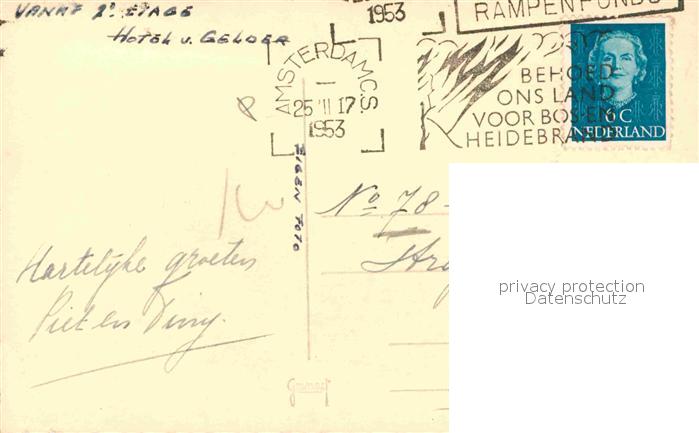 VANAF 2e ETAGE
HOTEL v. GELDER
1953
RAMPENFONDS
AMSTERDAM C.S.
25 VII 17
1953
BEHOED
ONS LAND
VOOR BOS- EN
HEIDEBRAND
10 C
NEDERLAND
EIGEN FOTO
No 78
Hartelijke groeten
Piet en Tiny.
privacy protection
Datenschutz